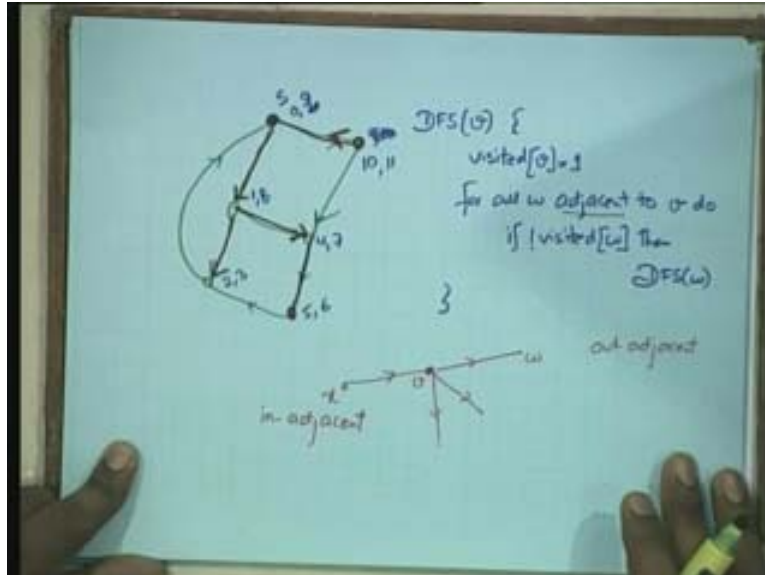 S
0,9
10,11
1,8
4,7
2,3
5,6
DFS(v) {
visited[v]=1
for all w adjacent to v do
if !visited[w] then
DFS(w)
}
v
w
in-adjacent
out adjacent